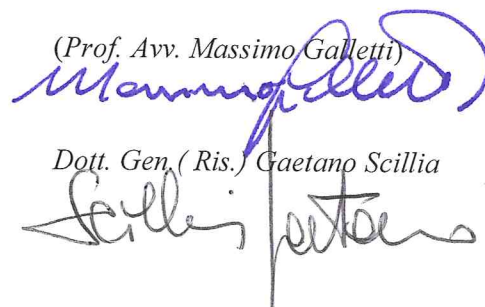 (Prof. Avv. Massimo Galletti)
Massimo Galletti
Dott. Gen. ( Ris.) Gaetano Scillia
Scillia Gaetano